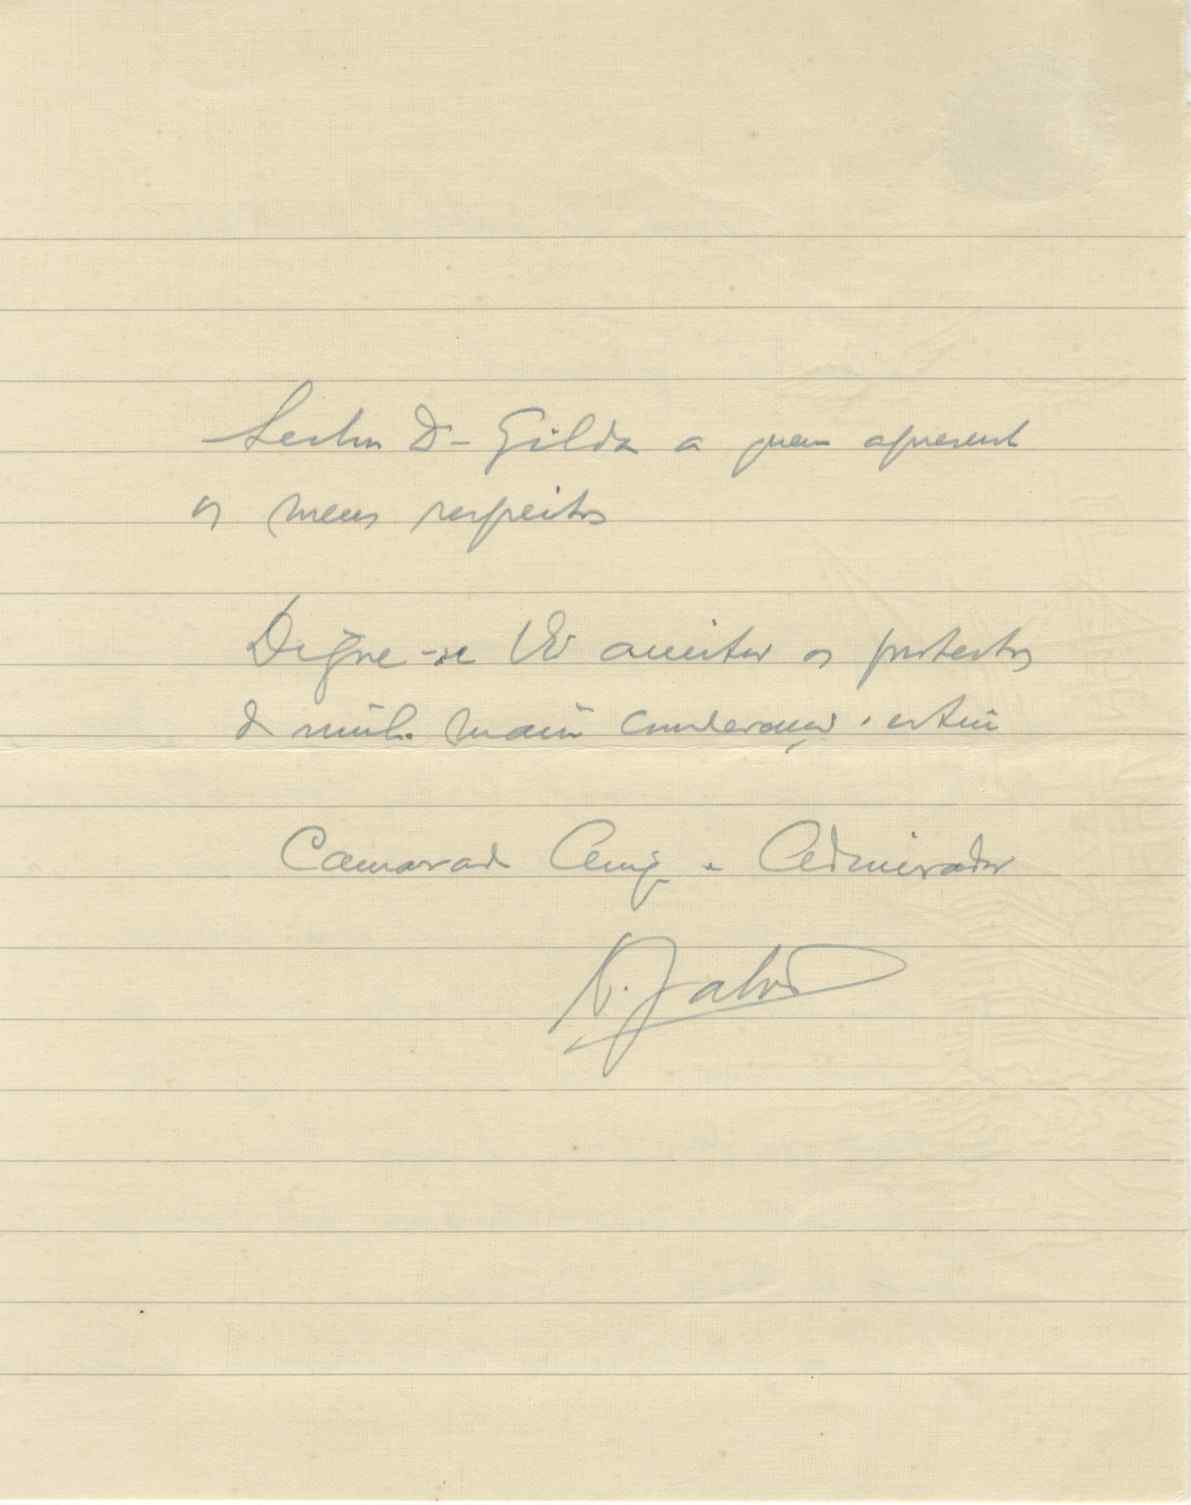 Senhora D. Gilda a quem apresento
os meus respeitos
Digne-se V. Exª aceitar os protestos
de minha maior consideração e estima
Camarada Amigo e Admirador